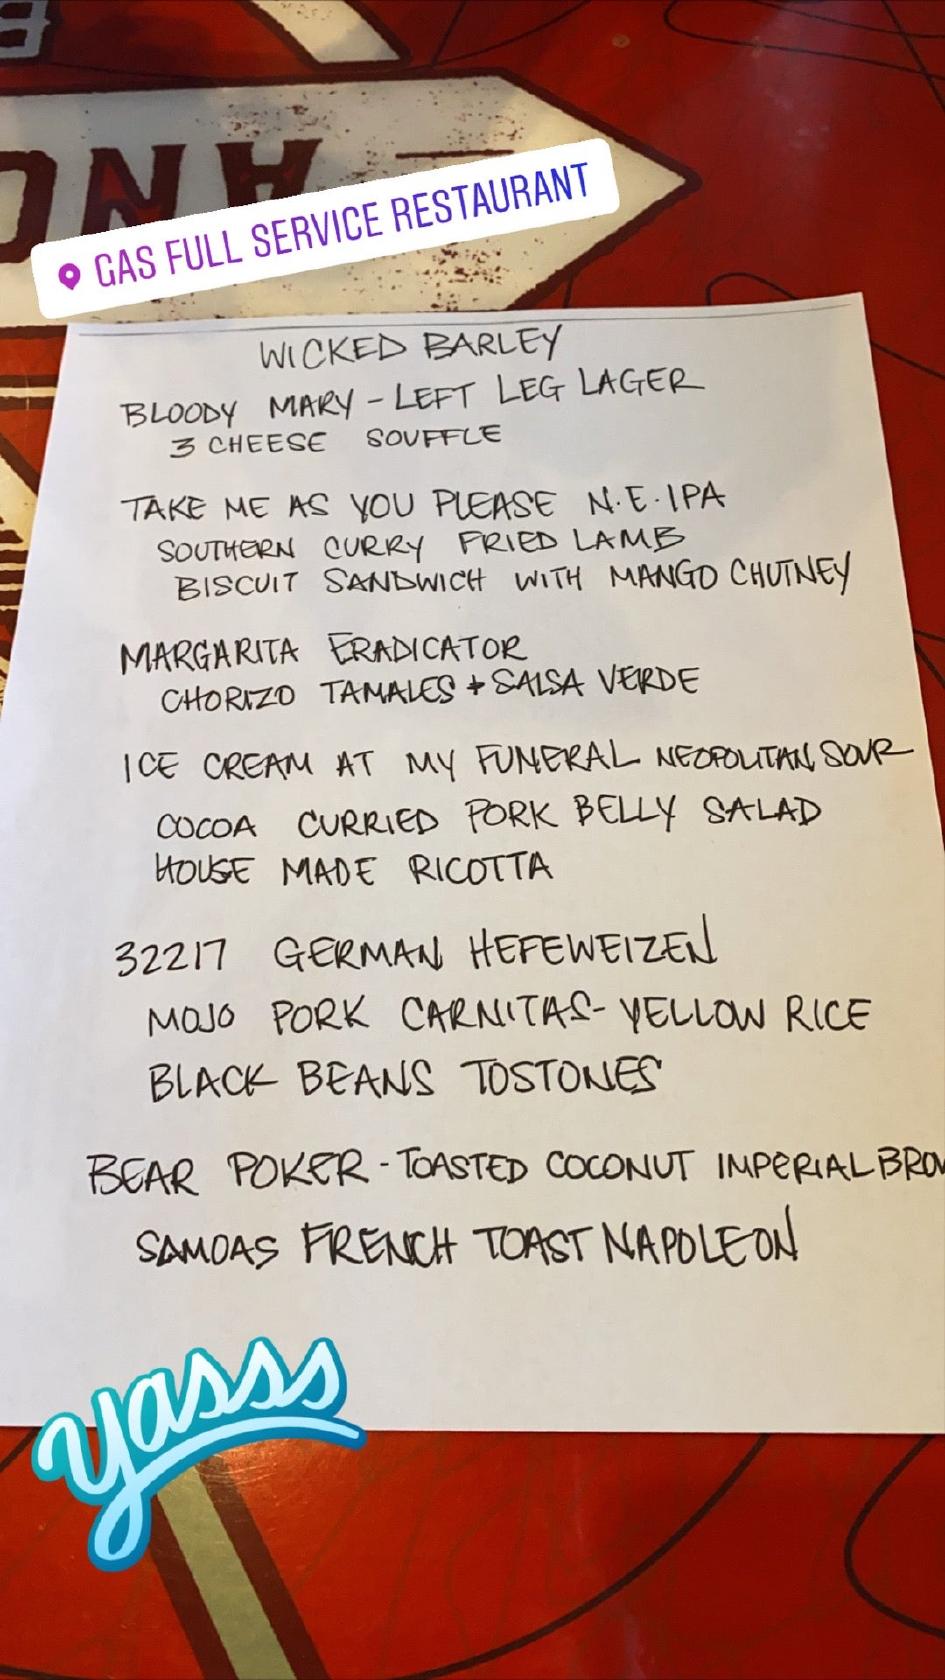 AND
GAS FULL SERVICE RESTAURANT
WICKED BARLEY
BLOODY MARY - LEFT LEG LAGER
3 CHEESE SOUFFLE
TAKE ME AS YOU PLEASE N.E. IPA
SOUTHERN CURRY FRIED LAMB
BISCUIT SANDWICH WITH MANGO CHUTNEY
MARGARITA ERADICATOR
CHORIZO TAMALES + SALSA VERDE
ICE CREAM AT MY FUNERAL NEOPOLITAN SOUR
COCOA CURRIED PORK BELLY SALAD
HOUSE MADE RICOTTA
32217 GERMAN HEFEWEIZEN
MOJO PORK CARNITAS - YELLOW RICE
BLACK BEANS TOSTONES
BEAR POKER - TOASTED COCONUT IMPERIAL BROW
SAMOAS FRENCH TOAST NAPOLEON
yasss